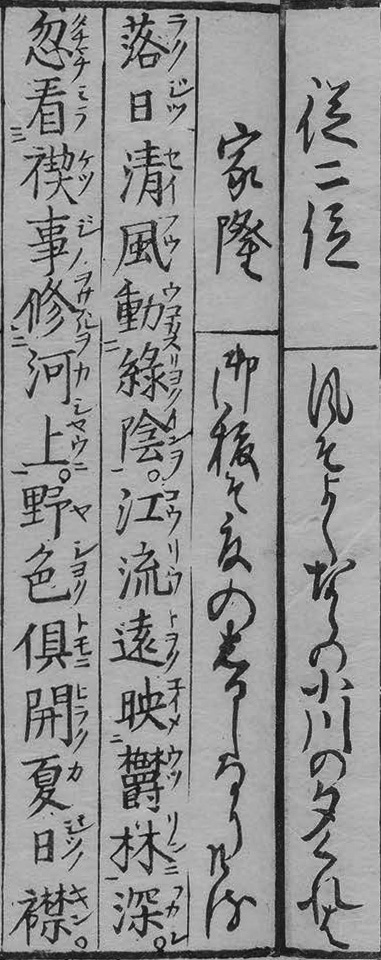 従二位
家隆
風そよくならの小川の夕くれは
御祓そ夏のしるしなりける
落日清風動綠陰。江流遠映欝林深。
忽看禊事修河上。野色俱開夏日襟。